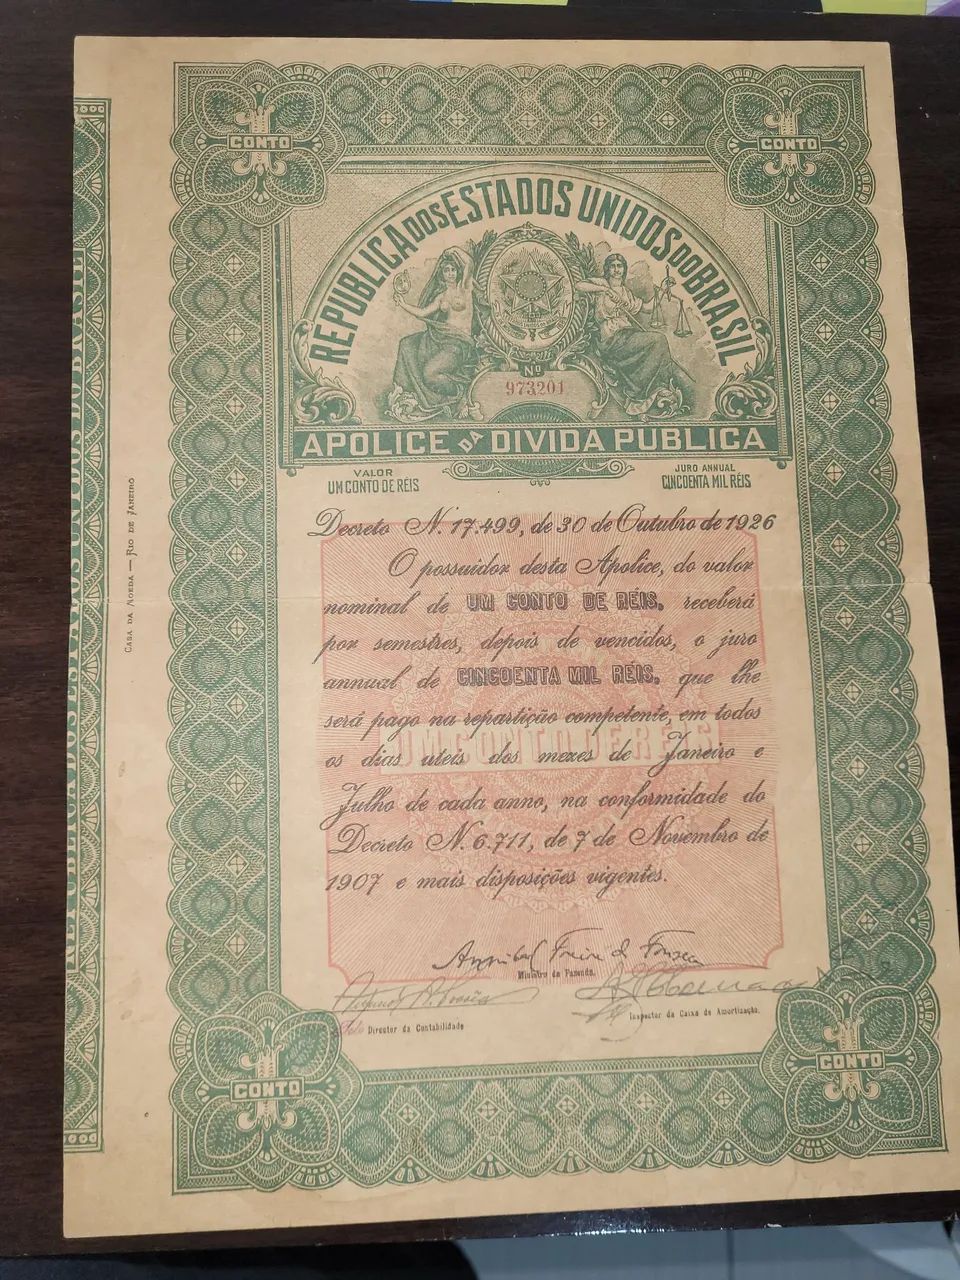 1 CONTO
1 CONTO
REPUBLICA DOS ESTADOS UNIDOS DO BRASIL
Nº
973201
APOLICE DA DIVIDA PUBLICA
VALOR
UM CONTO DE RÉIS
JURO ANNUAL
CINCOENTA MIL RÉIS
Decreto N. 17.499, de 30 de Outubro de 1926
O possuidor desta Apolice, do valor
nominal de UM CONTO DE RÉIS, receberá
por semestres, depois de vencidos, o juro
annual de CINCOENTA MIL RÉIS, que lhe
será pago na repartição competente, em todos
os dias uteis dos mezes de Janeiro e
Julho de cada anno, na conformidade do
Decreto N. 6.711, de 7 de Novembro de
1907 e mais disposições vigentes.
UM CONTO DE RÉIS
Annibal Freire da Fonseca
Ministro da Fazenda.
Pelo Director da Contabilidade
Inspector da Caixa de Amortização.
1 CONTO
1 CONTO
CASA DA MOEDA — RIO DE JANEIRO
REPUBLICA DOS ESTADOS UNIDOS DO BRASIL